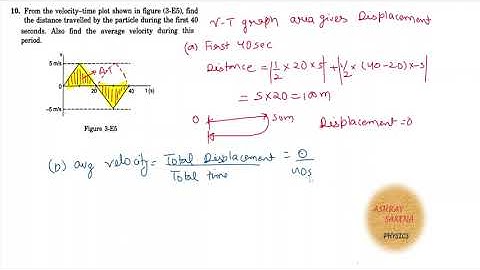 10. From the velocity–time plot shown in figure (3-E5), find
the distance travelled by the particle during the first 40
seconds. Also find the average velocity during this
period.
V
5 m/s
0
20
40
t (s)
–5 m/s
Figure 3-E5
V-T graph area gives Displacement
(a) First 40sec
Distance = |1/2 × 20 × 5| + |1/2 × (40-20) × -5|
= 5×20 = 100m
0
50m
Displacement = 0
(b) avg velocity = Total Displacement / Total time = 0 / 40s
ASHRAY
SAXENA
PHYSICS